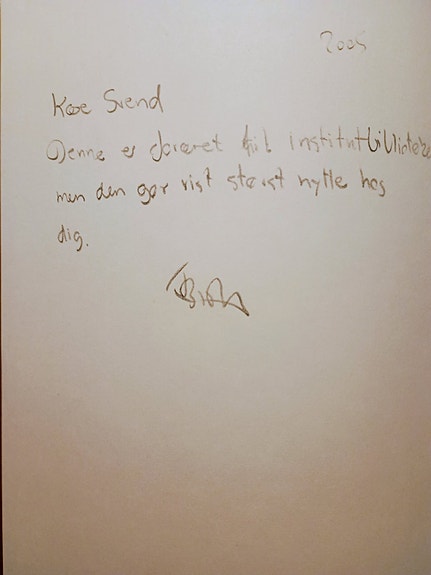 2005
Kære Svend
Denne er foræret til institutbiblioteket
men den gør vist størst nytte hos
dig.